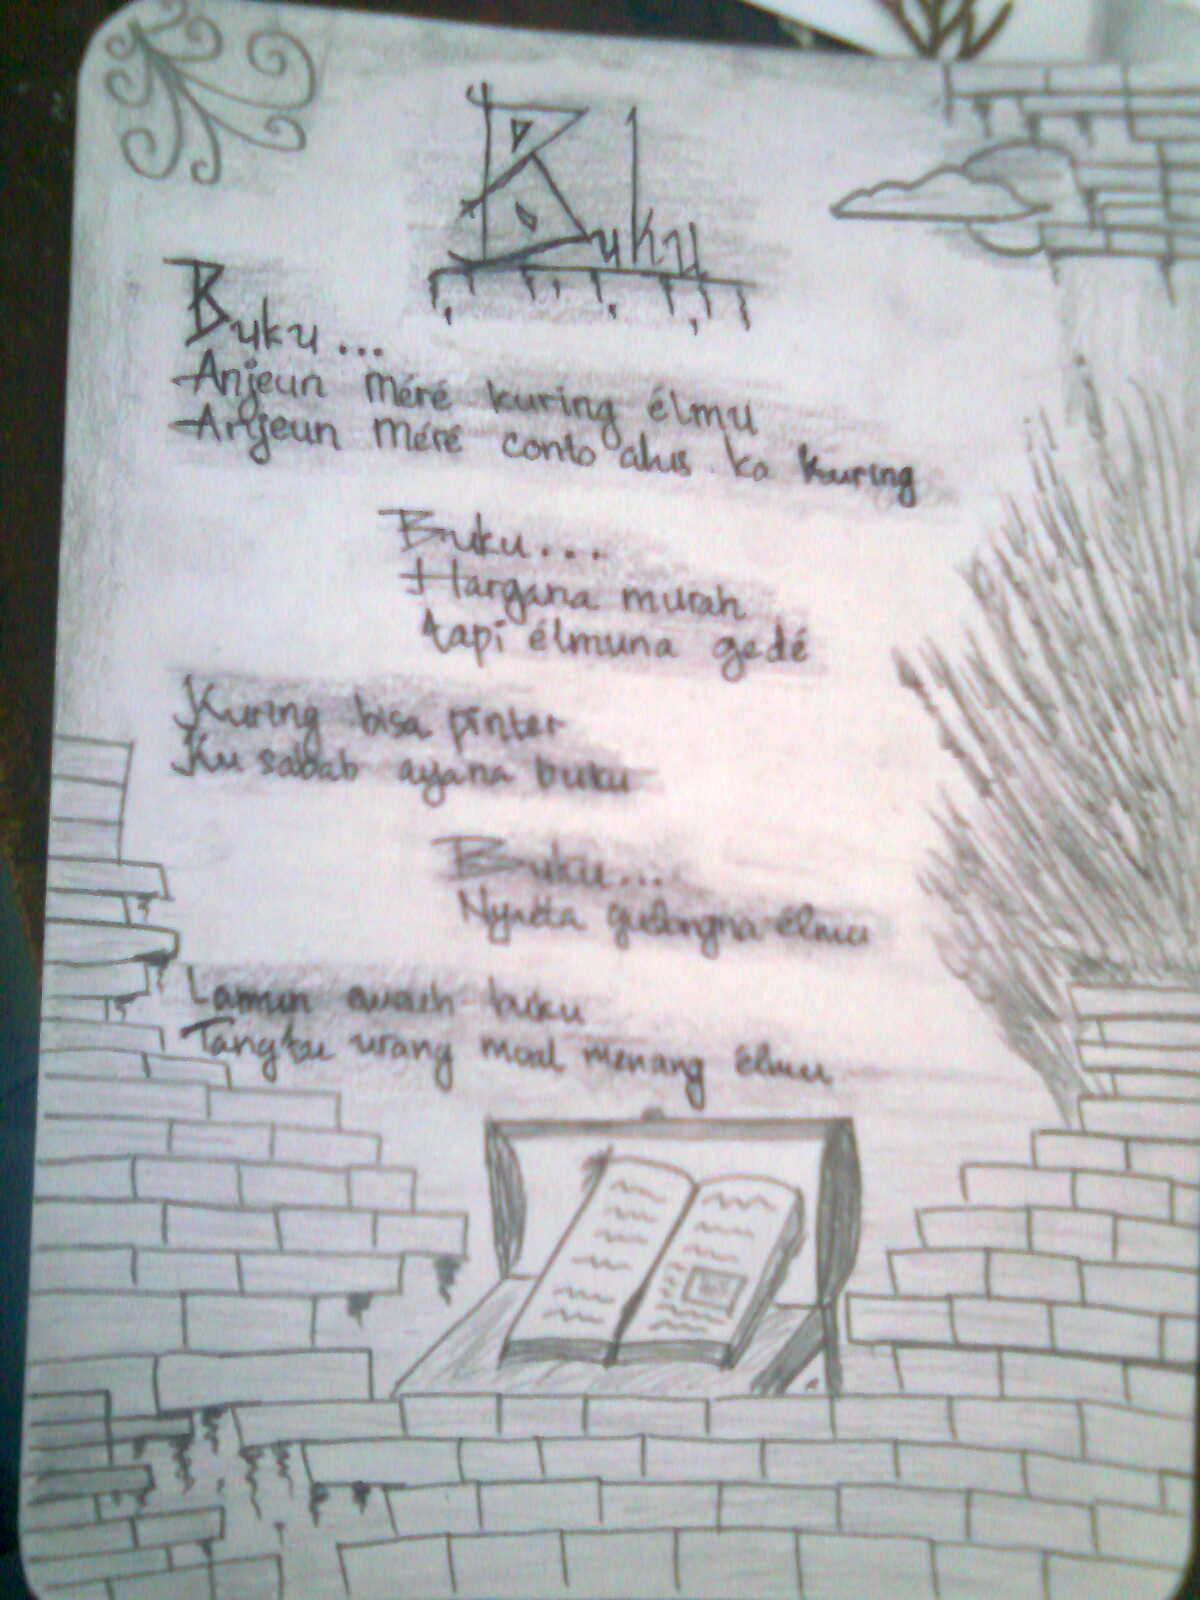 Buku
Buku...
Anjeun méré kuring élmu
Anjeun méré conto alus ka kuring
Buku...
Hargana murah
tapi élmuna gedé
Kuring bisa pinter
Ku sabab ayana buku
Buku...
Nyaéta gudangna élmu
Lamun euweuh buku
Tangtu urang moal menang élmu